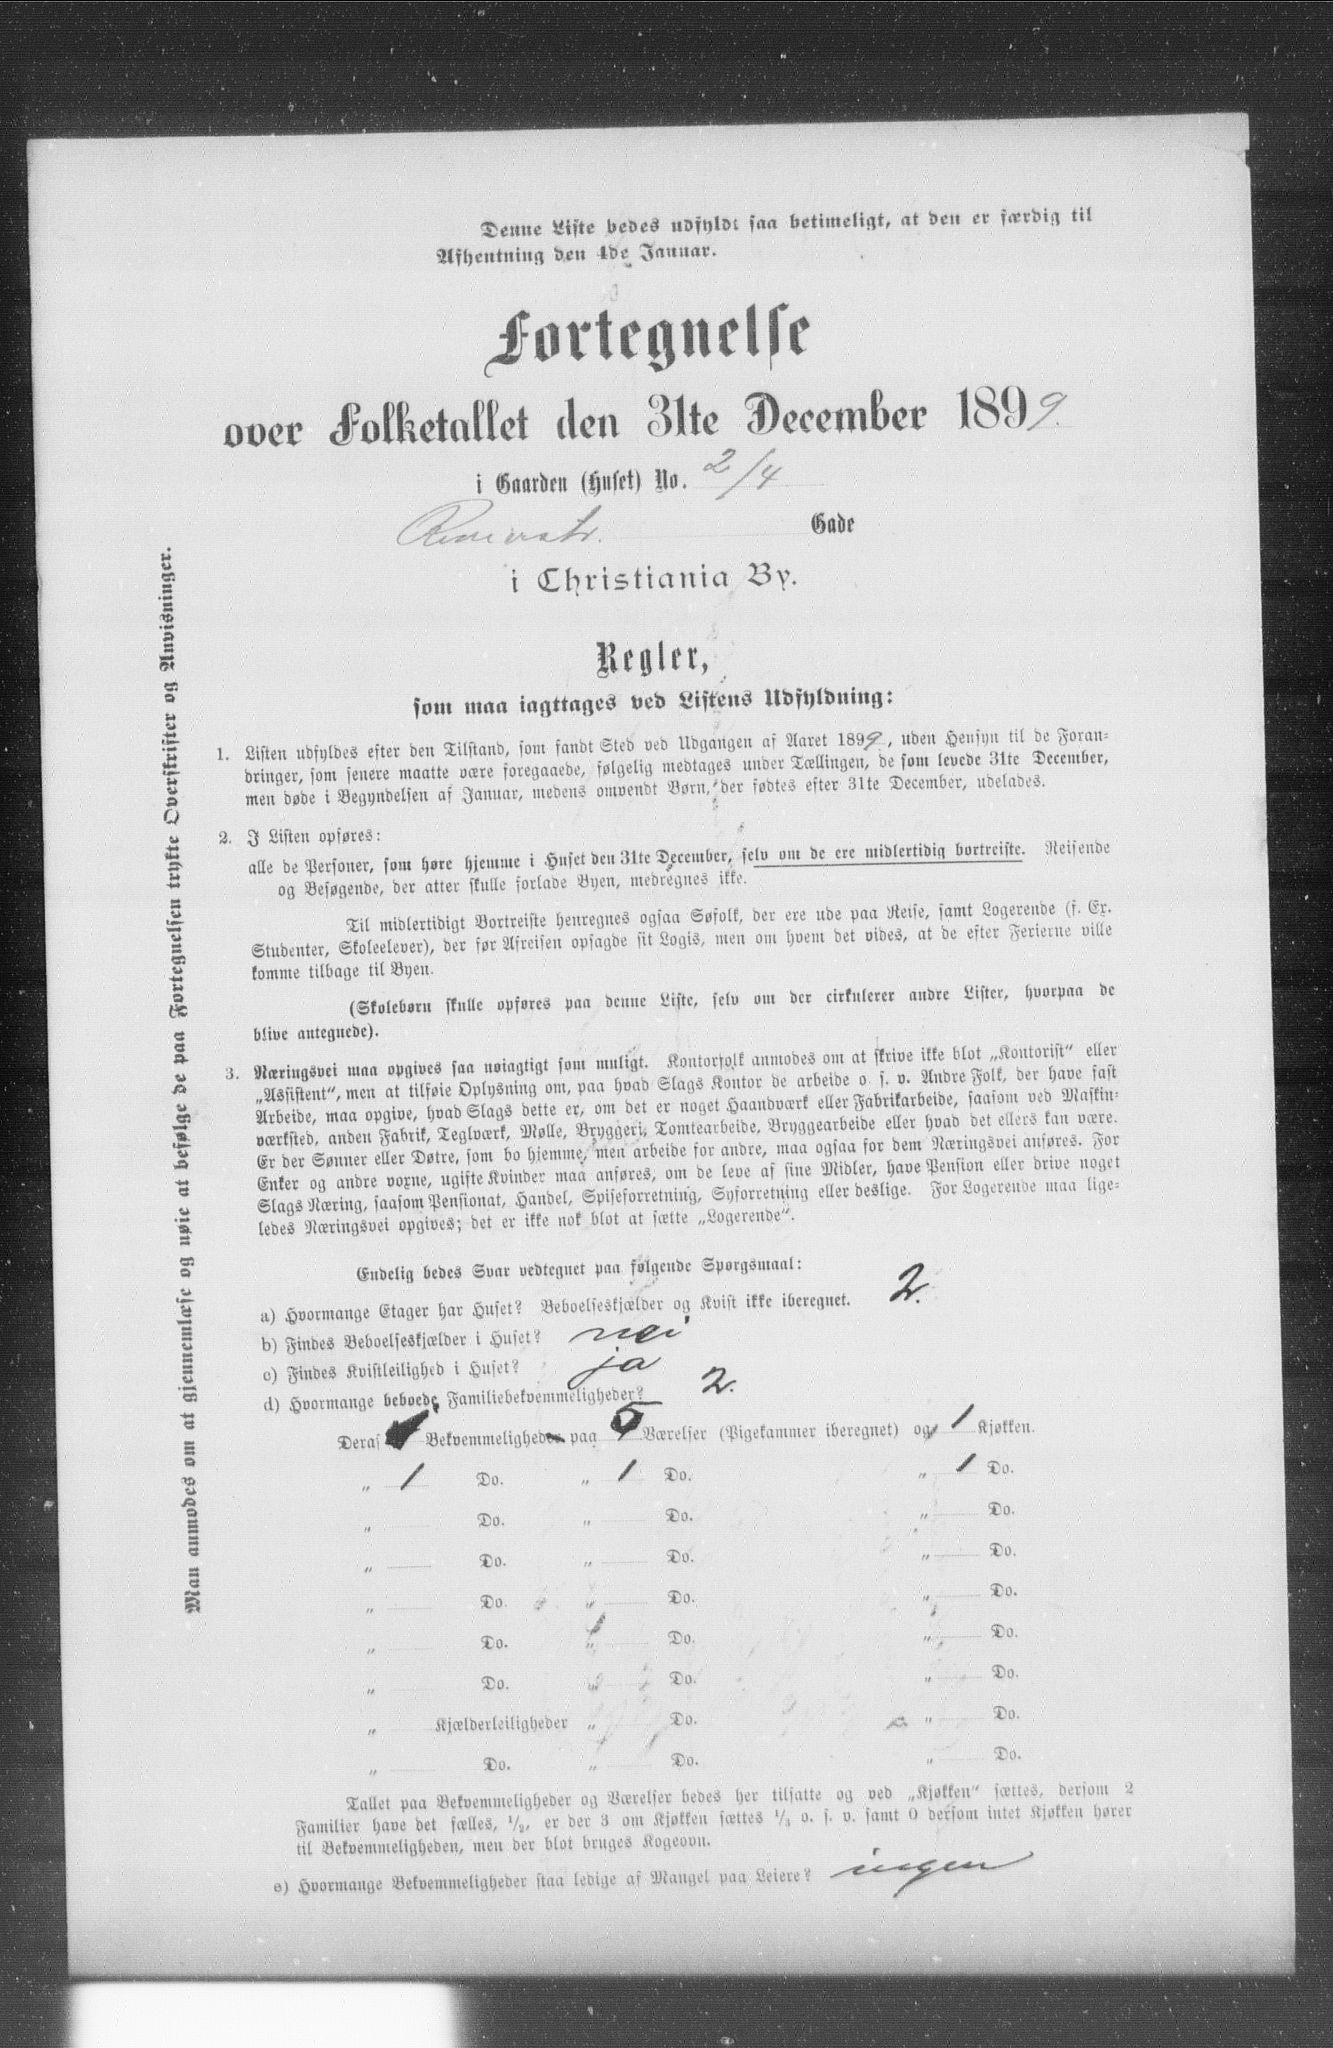 Denne Liste bedes udfyldt saa betimeligt, at den er færdig til
Afhentning den 4de Januar.
Fortegnelse
over Folketallet den 31te December 1899.
i Gaarden (Huset) No. 2/4
Gade
i Christiania By.
Regler,
som maa iagttages ved Listens Udfyldning:
1. Listen udfyldes efter den Tilstand, som fandt Sted ved Udgangen af Aaret 1899, uden Hensyn til de Foran-
dringer, som senere maatte være foregaaede, følgelig medtages under Tællingen, de som levede 31te December,
men døde i Begyndelsen af Januar, medens omvendt Børn, der fødtes efter 31te December, udelades.
2. I Listen opføres:
alle de Personer, som høre hjemme i Huset den 31te December, selv om de ere midlertidig bortreiste. Reisende
og Besøgende, der atter skulle forlade Byen, medregnes ikke.
Til midlertidigt Bortreiste henregnes ogsaa Søfolk, der ere ude paa Reise, samt Logerende (f. Ex.
Studenter, Skoleelever), der før Afreisen opsagde sit Logis, men om hvem det vides, at de efter Ferierne ville
komme tilbage til Byen.
(Skolebørn skulle opføres paa denne Liste, selv om der cirkulerer andre Lister, hvorpaa de
blive antegnede).
3. Næringsvei maa opgives saa nøiagtigt som muligt. Kontorfolk anmodes om at skrive ikke blot „Kontorist“ eller
„Assistent“, men at tilføie Oplysning om, paa hvad Slags Kontor de arbeide o. s. v. Andre Folk, der have fast
Arbeide, maa opgive, hvad Slags dette er, om det er noget Haandværk eller Fabrikarbeide, saasom ved Maskin-
værksted, anden Fabrik, Teglværk, Mølle, Bryggeri, Tomtearbeide, Bryggearbeide eller hvad det ellers kan være.
Er der Sønner eller Døtre, som bo hjemme, men arbeide for andre, maa ogsaa for dem Næringsvei anføres. For
Enker og andre voxne, ugifte Kvinder maa anføres, om de leve af sine Midler, have Pension eller drive noget
Slags Næring, saasom Pensionat, Handel, Spiseforretning, Syforretning eller deslige. For Logerende maa lige-
ledes Næringsvei opgives; det er ikke nok blot at sætte „Logerende“.
Endelig bedes Svar vedtegnet paa følgende Spørgsmaal:
a) Hvormange Etager har Huset? Beboelseskjælder og Kvist ikke iberegnet. 2.
b) Findes Beboelseskjælder i Huset? nei
c) Findes Kvistleilighed i Huset? ja
d) Hvormange beboede Familiebekvemmeligheder? 2.
Deraf 1 Bekvemmeligheder paa 5 Værelser (Pigekammer iberegnet) og 1 Kjøkken.
„ 1 Do. „ 1 Do. „ 1 Do.
„ Do. „ Do. „ Do.
„ Do. „ Do. „ Do.
„ Do. „ Do. „ Do.
„ Do. „ Do. „ Do.
„ Do. „ Do. „ Do.
„ Kjælderleiligheder „ Do. „ Do.
„ Do. „ Do. „ Do.
Tallet paa Bekvemmeligheder og Værelser bedes her tilsatte og ved „Kjøkken“ sættes, dersom 2
Familier have det fælles, 1/2, er der 3 om Kjøkken sættes 1/3 o. s. v. samt 0 dersom intet Kjøkken hører
til Bekvemmeligheden, men der blot bruges Kogeovn.
e) Hvormange Bekvemmeligheder staa ledige af Mangel paa Leiere? ingen
Man anmodes om at gjennemlæse og nøie at befølge de paa Fortegnelsen trykte Overskrifter og Anvisninger.